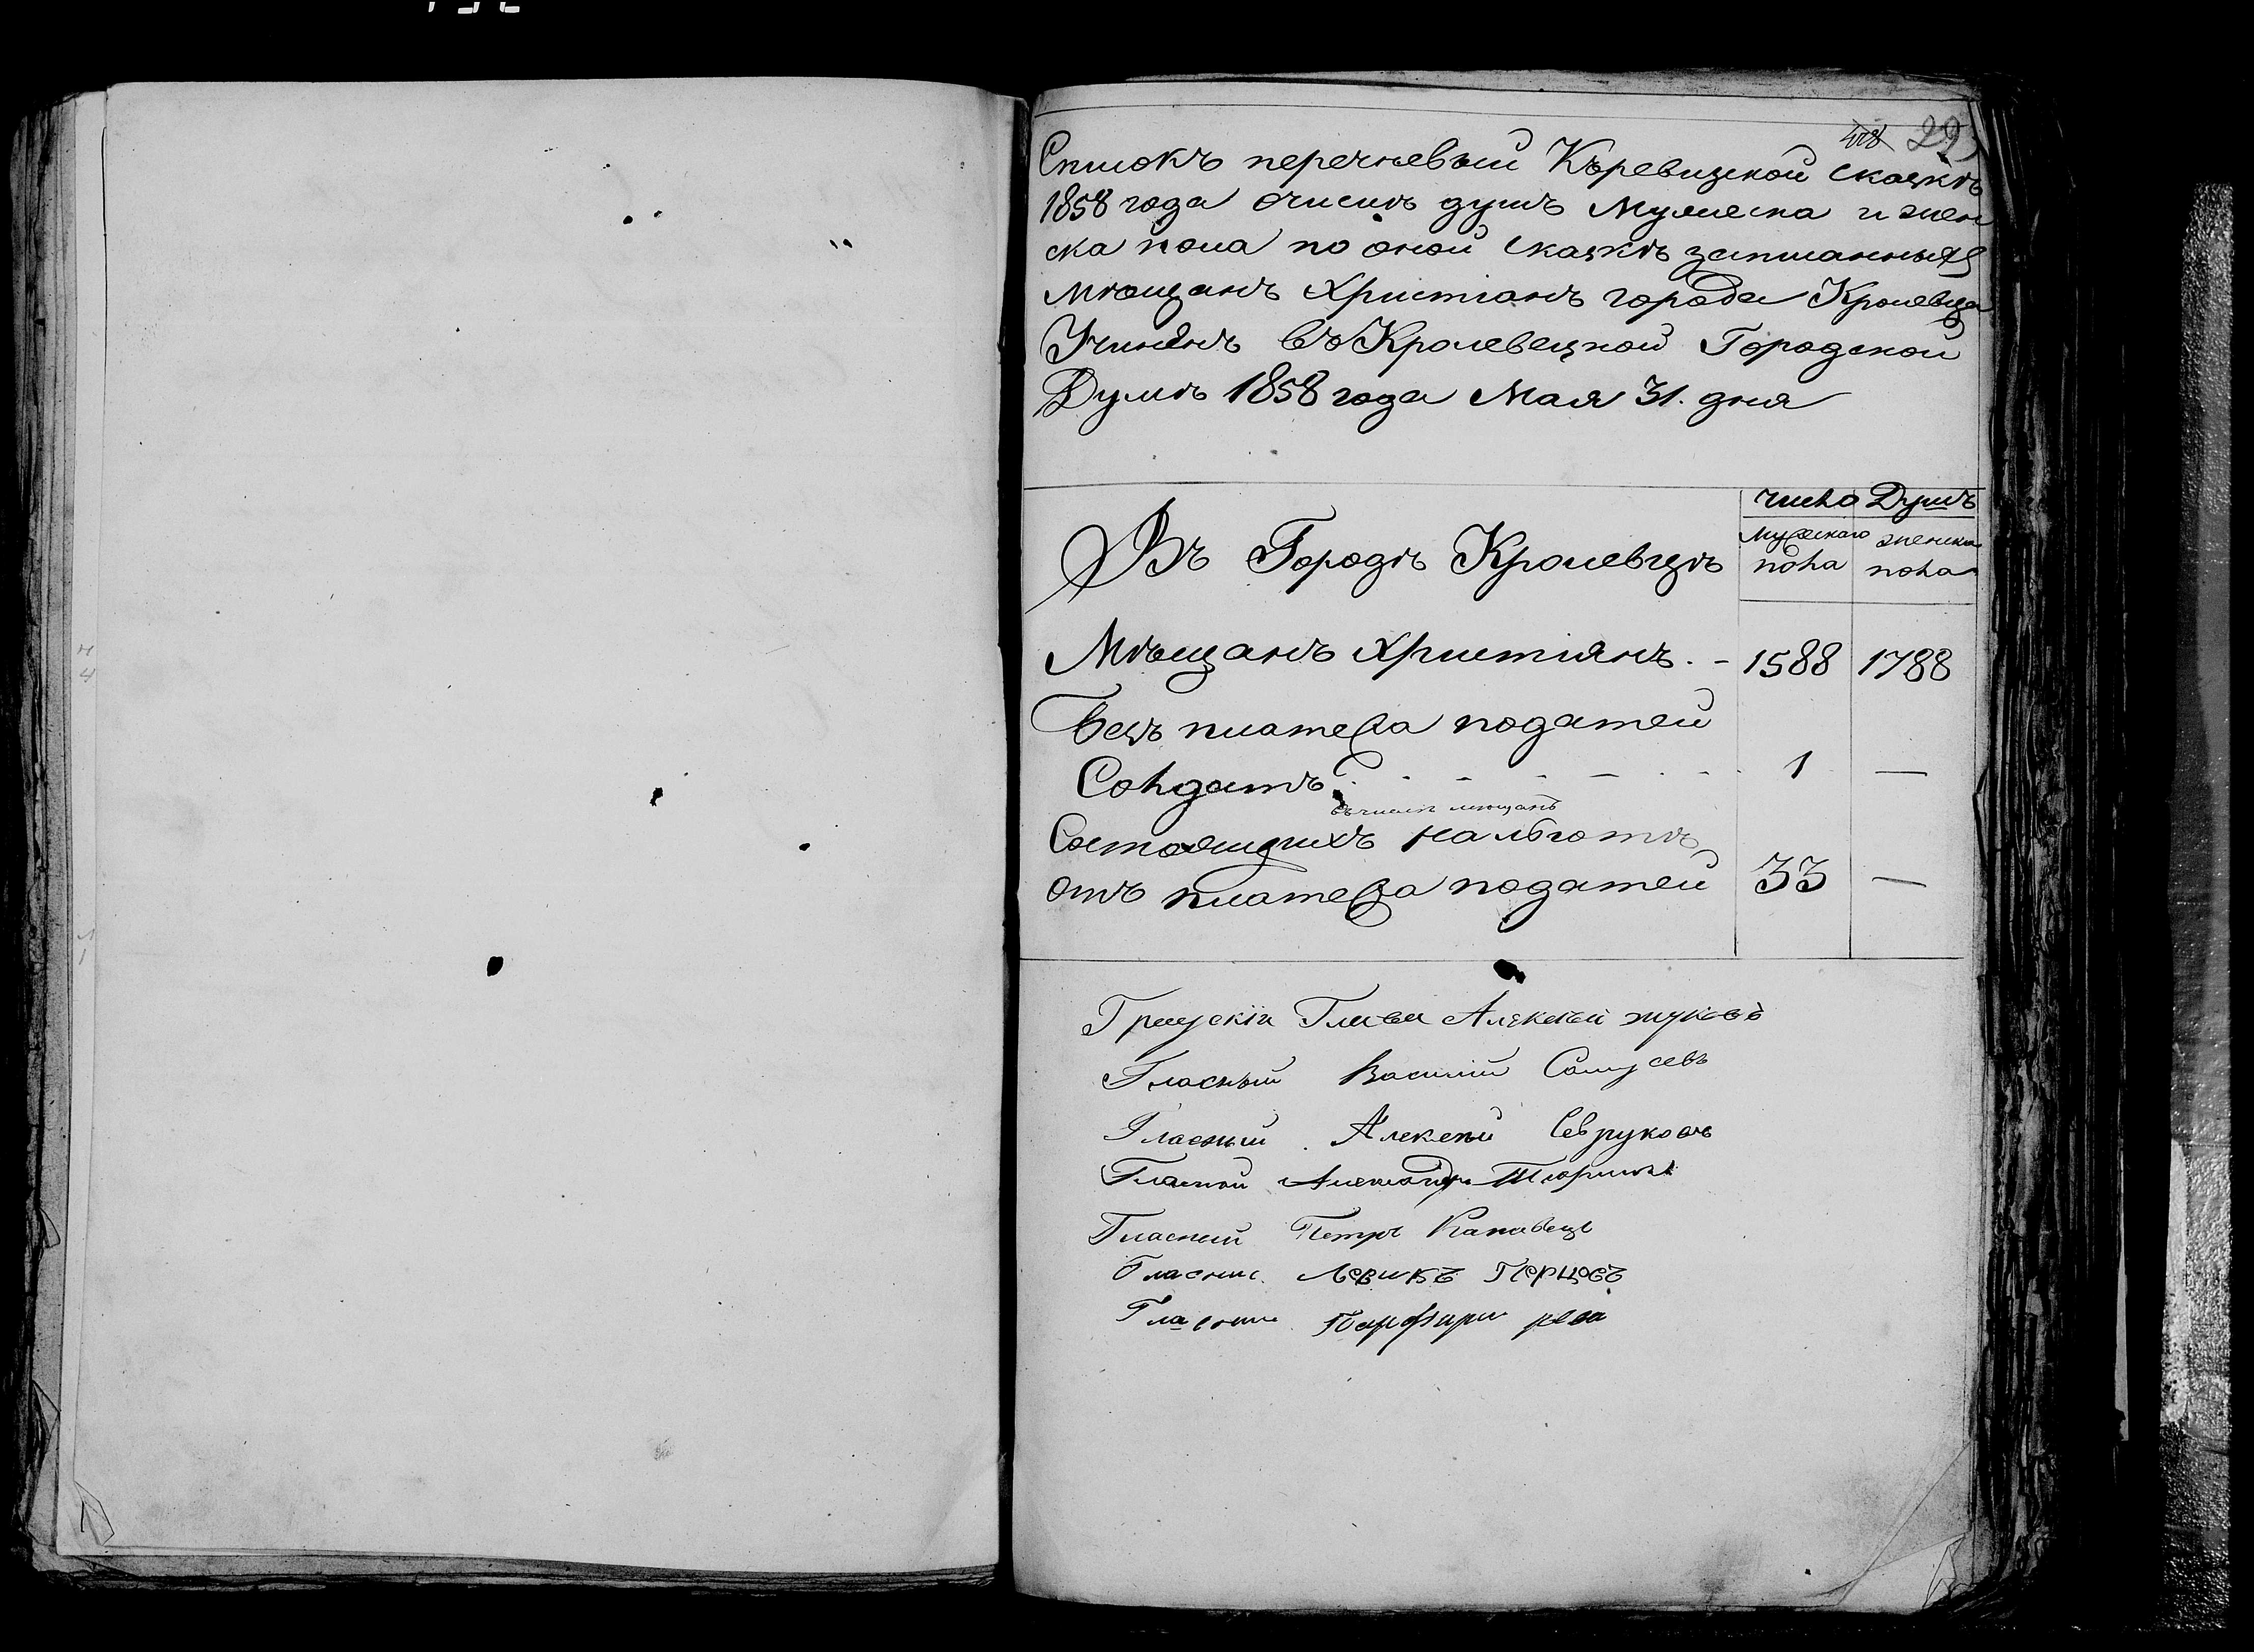 Списокъ перечневый Къревизской сказкѣ
1858 года очислѣ душъ Мужеска и жен
ска пола по оной сказкѣ записанныхъ
Мѣщанъ Христіанъ города Кролевца
Учиненъ въ Кролевецкой Городской
Думѣ 1858 года Мая 31. дня
число Душъ
Въ Городѣ Кролевцѣ
Мужескаго женска
пола пола
Мѣщанъ христіянъ. - 1588 1788
Безъ платежа податей
Солдатъ 1 —
въ числѣ мещанъ
Состоящихъ на льготѣ
отъ платежа податей 33 —
Глава Алексѣй жуковъ
Гласный Василій
Гласный Алексей Севруковъ
Гласной Александръ
Гласный Петръ
Гласный Левикъ Перцовъ
Гласные Парфири